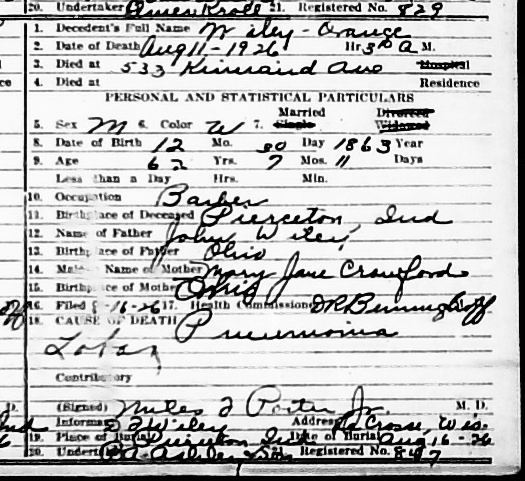 20. Undertaker Owen Kroll 21. Registered No. 829
1. Decedent's Full Name Wiley - Orange
2. Date of Death Aug 11 - 1926 Hr 3 A M.
3. Died at 533 Kinnaird Ave Hospital
4. Died at Residence
PERSONAL AND STATISTICAL PARTICULARS
Married Divorced
5. Sex M 6. Color W 7. Single Widowed
8. Date of Birth 12 Mo. 30 Day 1863 Year
9. Age 62 Yrs. 7 Mos. 11 Days
Less than a Day Hrs. Min.
10. Occupation Barber
11. Birthplace of Deceased Pierceton, Ind
12. Name of Father John Wiley
13. Birthplace of Father Ohio
14. Maiden Name of Mother Mary Jane Crawford
15. Birthplace of Mother Ohio
16. Filed 8-16-26 17. Health Commissioner DR Benninghoff
18. CAUSE OF DEATH Pneumonia
Lobar
Contributory
(Signed) Miles F Porter Jr. M. D.
Informant Wiley Address La Crosse, Wis.
19. Place of Burial Pierceton Ind Date of Burial Aug 16 - 26
20. Undertaker Ashley & Son 21. Registered No.